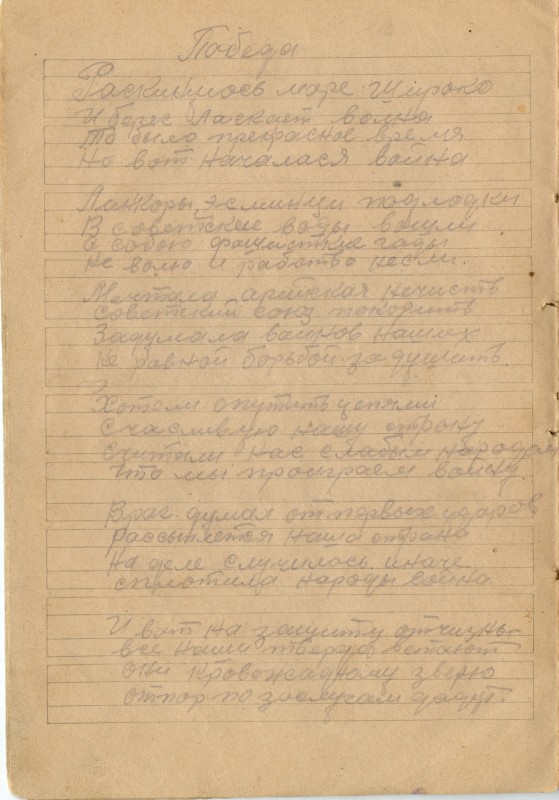 Победа
Раскинулось море широко
И берег ласкает волна
То было прекрасное время
Но вот началася война
Линкоры, эсминци подлодки
В советские воды вошли
С собою фашисткие гады
Не волю и рабство несли.
Мечтала арийская нечисть
Советский союз покорить
Задумала воинов наших
Не равной борьбой задушить.
Хотели опутить цепями
Счасливую нашу страну
Считали нас слабым народом
Что мы проиграем войну
Враг думал от первых ударов
Рассыплется наша страна
На деле случилось иначе
сплотила народы война
И вот на защиту отчизны
все наши твердо встают
Они кровожадному зверю
отпор по заслугам дадут.